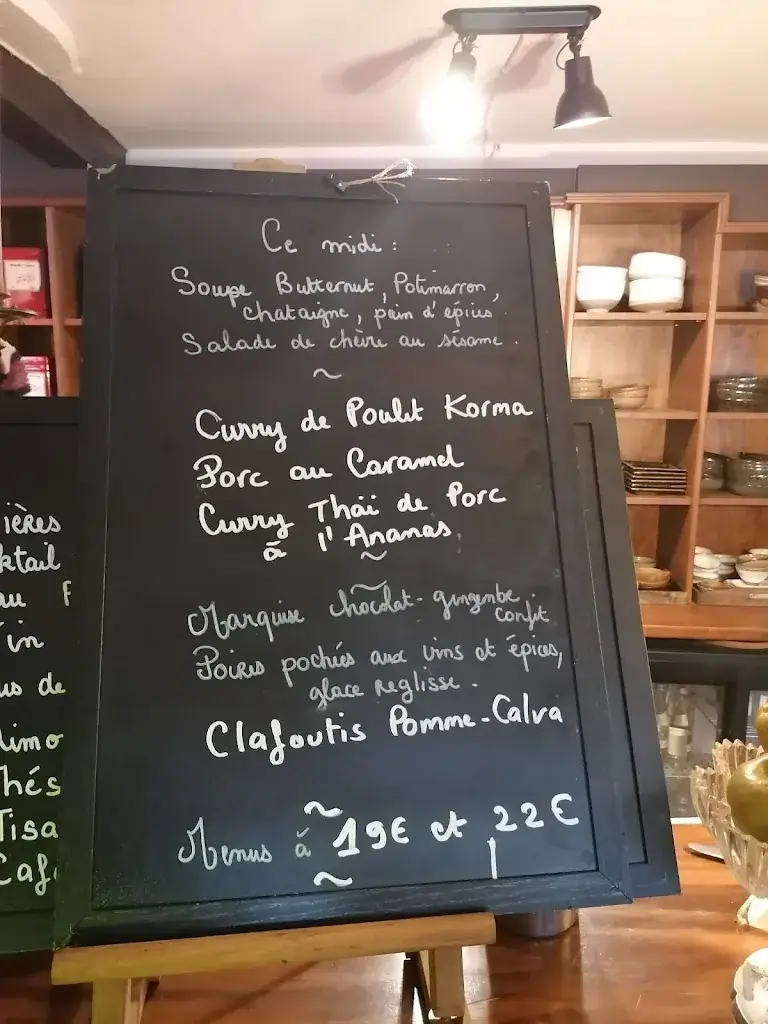 Ce midi :
Soupe Butternut, Potimarron,
chataigne, pain d'épices
Salade de chèvre au sésame.
~
Curry de Poulet Korma
Porc au Caramel
Curry Thaï de Porc
à l'Ananas
~
Marquise chocolat-gingembre
confit
Poires pochées aux vins et épices,
glace reglisse.
Clafoutis Pomme-Calva
~
Menus à 19€ et 22€
~
ières
ktail
au F
in
us de
limo
hés
Tisa
Caf